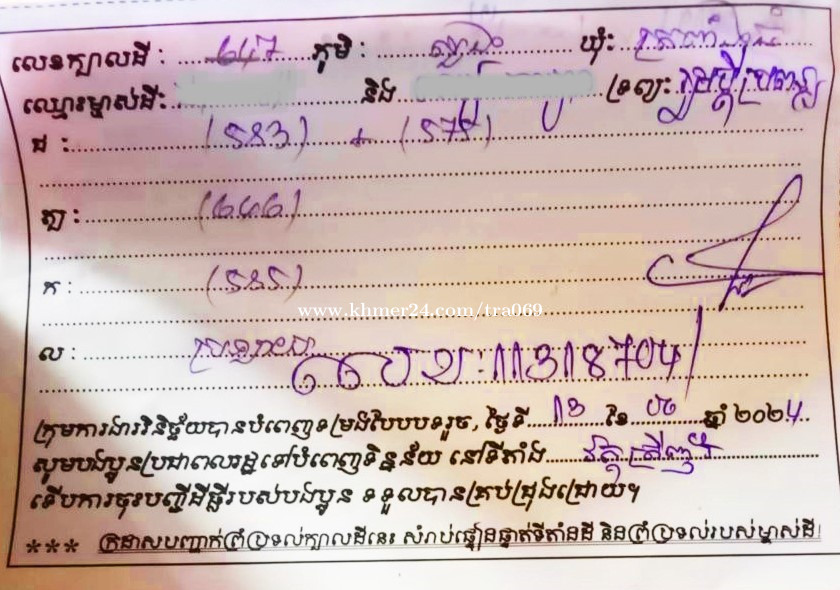 លេខក្បាលដី: 647 ភូមិ: ស្វាយ ឃុំ:
ឈ្មោះម្ចាស់ដី: និង ទ្រព្យ: រួមប្តីប្រពន្ធ
ជ: (583) + (575)
ត្ប: (646)
ក: (585)
www.khmer24.com/tra069
ល:
លេខ:11318704
ក្រុមការងារវិនិច្ឆ័យបានបំពេញទម្រង់បែបបទរួច, ថ្ងៃទី 13 ខែ ឆ្នាំ ២០២4
សូមបងប្អូនប្រជាពលរដ្ឋទៅបំពេញទិន្នន័យ នៅទីតាំង វត្ត
ទើបការចុះបញ្ជីដីធ្លីរបស់បងប្អូន ទទួលបានគ្រប់ជ្រុងជ្រោយ។
*** ក្រដាសបញ្ជាក់ព្រំប្រទល់ក្បាលដីនេះ សំរាប់ផ្ទៀងផ្ទាត់ទីតាំងដី និងព្រំប្រទល់របស់ម្ចាស់ដី